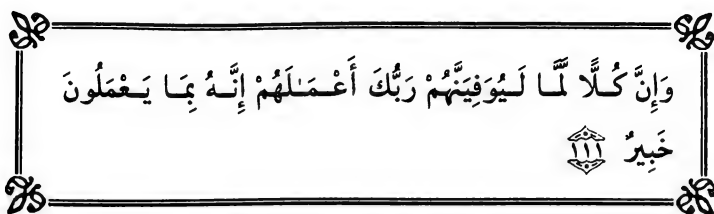 وَإِنَّ كُلًّا لَّمَّا لَيُوَفِّيَنَّهُمْ رَبُّكَ أَعْمَـٰلَهُمْ إِنَّهُ بِمَا يَعْمَلُونَ
خَبِيرٌ ١١١